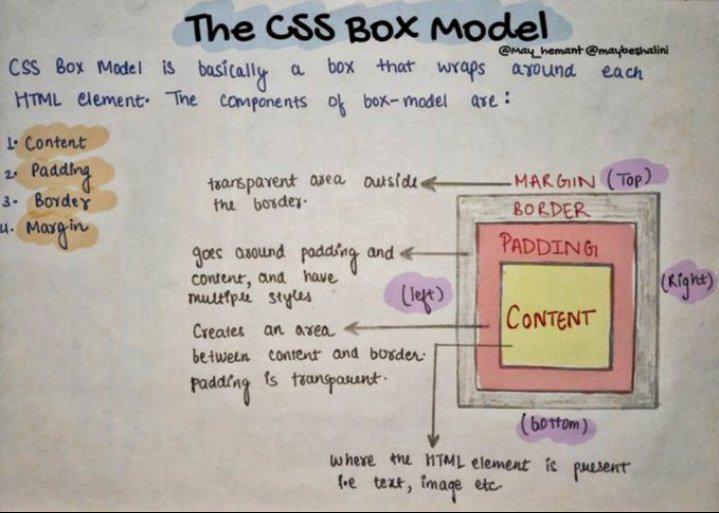 The CSS Box Model
@May_hemant @maybeshalini
CSS Box Model is basically a box that wraps around each
HTML element. The components of box-model are:
1. Content
2. Padding
3. Border
4. Margin
transparent area outside
the border.
MARGIN (Top)
BORDER
PADDING
CONTENT
goes around padding and
content, and have
multiple styles
(left)
(Right)
Creates an area
between content and border.
padding is transparent.
(bottom)
where the HTML element is present
i.e text, image etc.